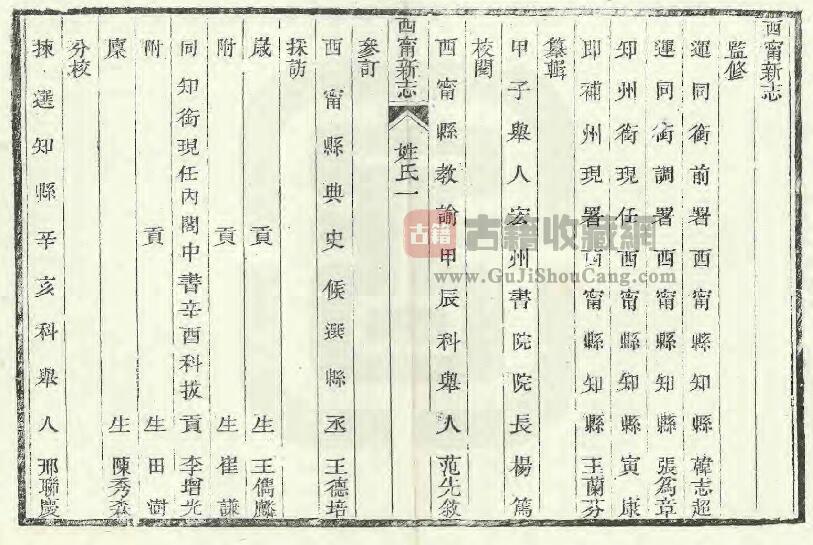 西甯新志
監修
運同銜前署西甯縣知縣韓志超
運同銜調署西甯縣知縣張爲章
知州銜現任西甯縣知縣寅康
即補州現署西甯縣知縣王蘭芬
纂輯
甲子舉人宏州書院院長楊篤
校閱
西甯縣教諭甲辰科舉人范先敘
西甯新志
姓氏一
參訂
西甯縣典史候選縣丞王德培
採訪
歲貢生王偶麟
附貢生崔謙
同知銜現任內閣中書辛酉科拔貢李增光
附貢生田澍
廩生陳秀森
分校
揀選知縣辛亥科舉人邢聯慶
古籍 古籍收藏網
www.GuJiShouCang.com